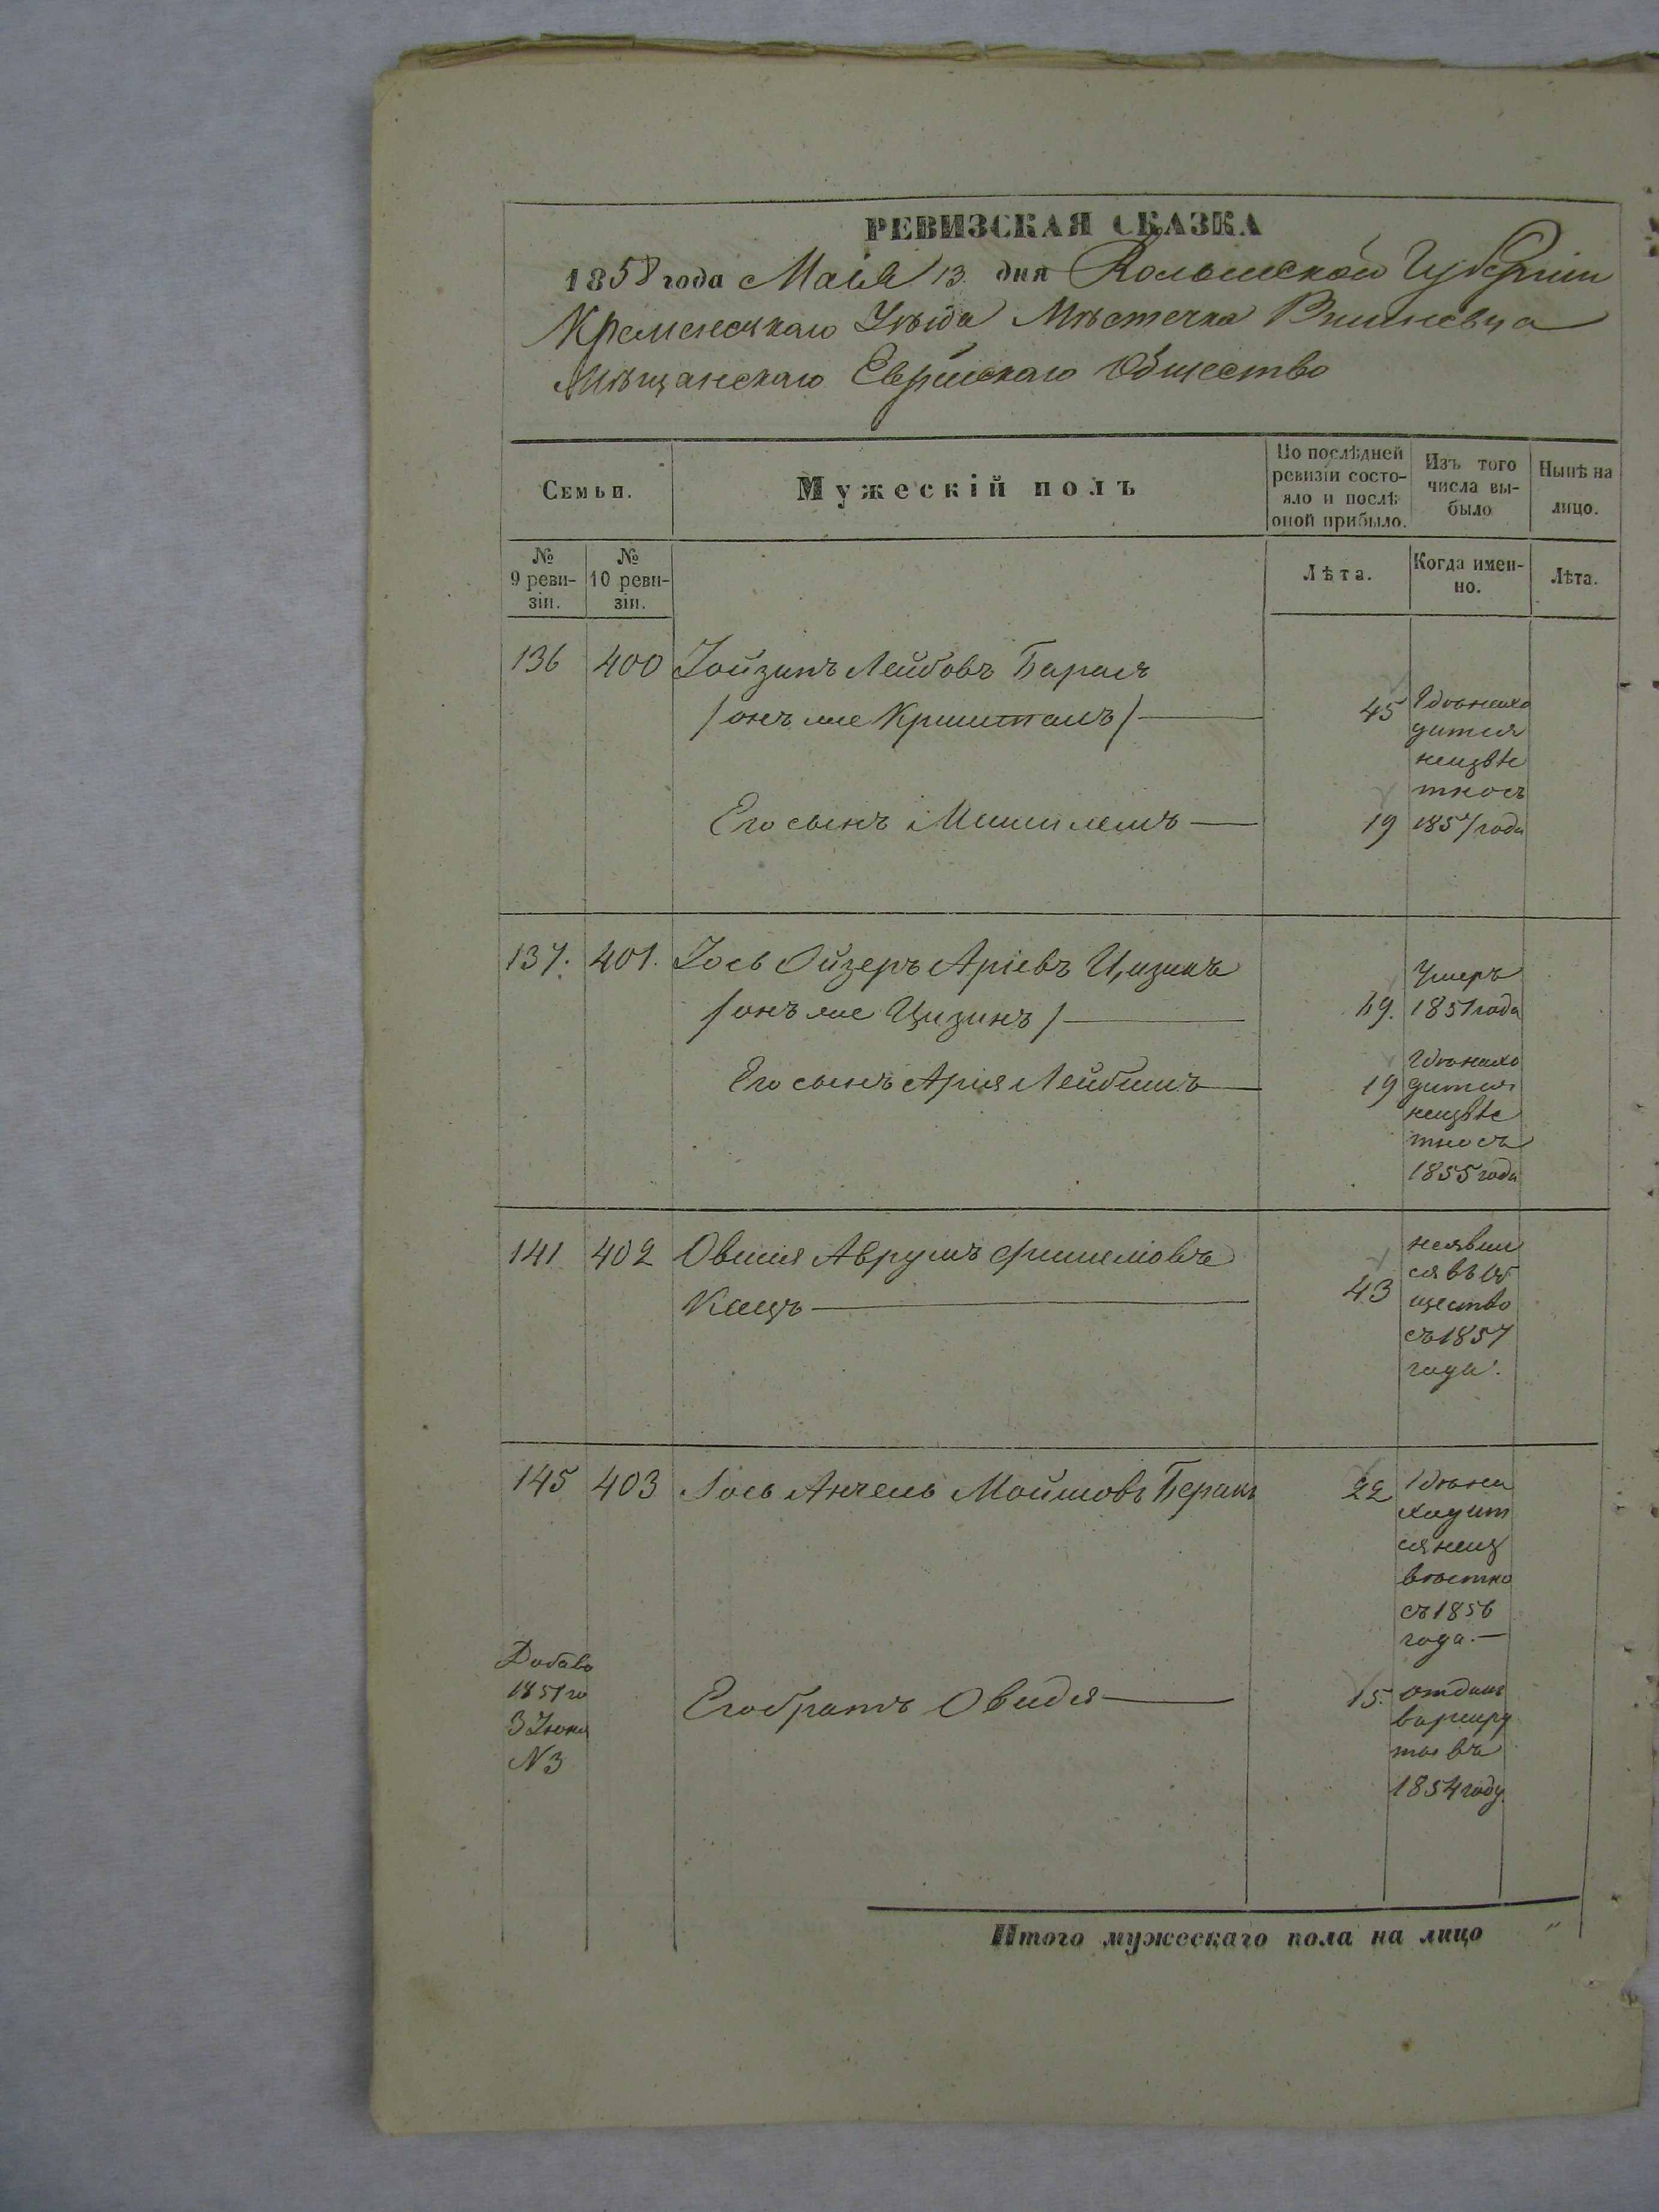 РЕВИЗСКАЯ СКАЗКА
1858 года Маія 13 дня Волынской Губерніи
Кременецкаго Уѣзда Мѣстечка Вишневца
Мѣщанскаго Еврейскаго Общество
Семьи.
Мужескій полъ
По послѣдней
ревизіи состо-
яло и послѣ
оной прибыло.
Изъ того
числа вы-
было
Нынѣ на
лицо.
№
9 реви-
зіи.
№
10 реви-
зіи.
Лѣта.
Когда имен-
но.
Лѣта.
136 400 Іойзипъ Лейбовъ
/ онъ же Кришталъ / 45 Гдѣ нахо
дится
неизвѣс
тно съ
Его сынъ 19 1857 года
137. 401. Іось Ойзеръ Аріевъ Цизинъ
/ онъ же Цизинъ / 49.
Умеръ
1851 года
Его сынъ Арія Лейбишъ 19
Гдѣ нахо
дится
неизвѣс
тно съ
1855 года
141 402 Овшія Аврумъ Фишелювъ
Кацъ 43
неявил
ся въ об
щество
съ 1857
года.
145 403 Іось Анчель Мошковъ 22 Гдѣ на
ходит
ся неиз
вѣстно
съ 1856
года.
Добав
1851 го
3 Іюня
N 3
Его братъ Овадя 15. отданъ
в рекру
ты въ
1854 году
Итого мужескаго пола на лицо "